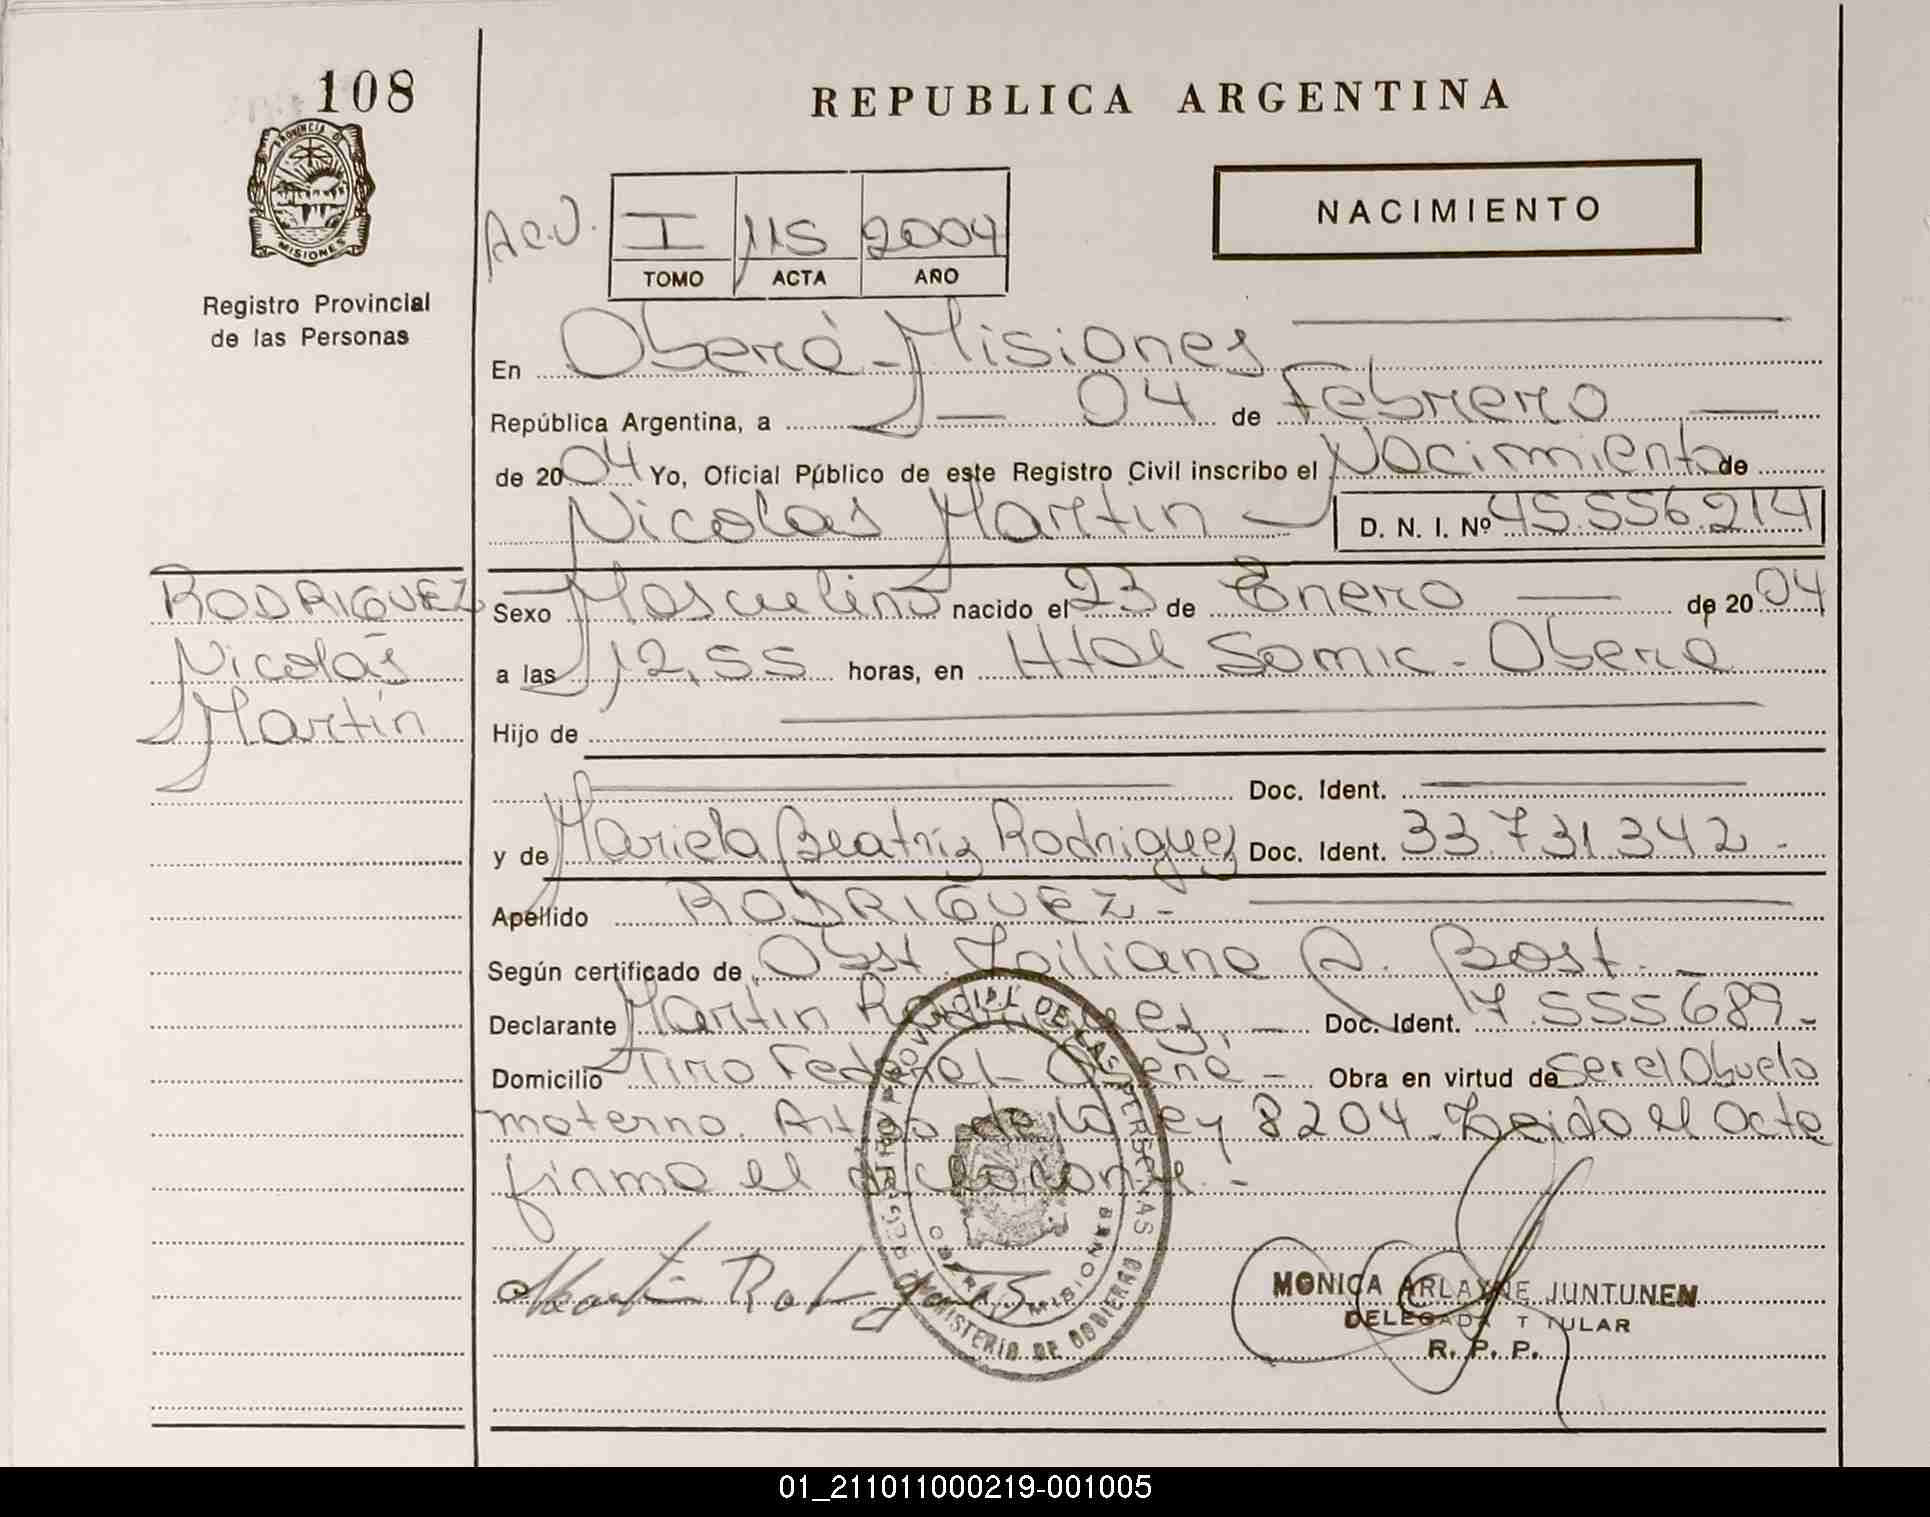 108
PROVINCIA DE
MISIONES
Registro Provincial
de las Personas
REPUBLICA ARGENTINA
NACIMIENTO
I 115 2004
TOMO ACTA AÑO
En Oberá - Misiones
República Argentina, a 04 de Febrero
de 2004 Yo, Oficial Público de este Registro Civil inscribo el Nacimiento de
Nicolas Martin D. N. I. Nº 45.556.214
RODRIGUEZ
Nicolás
Martín
Sexo Masculino nacido el 23 de Enero de 2004
a las 12,55 horas, en Htal Samic - Obera
Hijo de
Doc. Ident.
y de Mariela Beatriz Rodriguez Doc. Ident. 33.731.342.-
Apellido RODRIGUEZ -
Según certificado de Obst A. Bost.
Declarante Martin Rodriguez. Doc. Ident. 7.555.689.-
Domicilio Tiro Federal - Oberá - Obra en virtud de Ser el Abuelo
materno. de la Ley 8204. Leido el acta
firma el declarante.-
REGISTRO PROVINCIAL DE LAS PERSONAS
OBERA - MISIONES
MINISTERIO DE GOBIERNO
MONICA ARLAYNE JUNTUNEN
DELEGADA TITULAR
R. P. P.
01_211011000219-001005